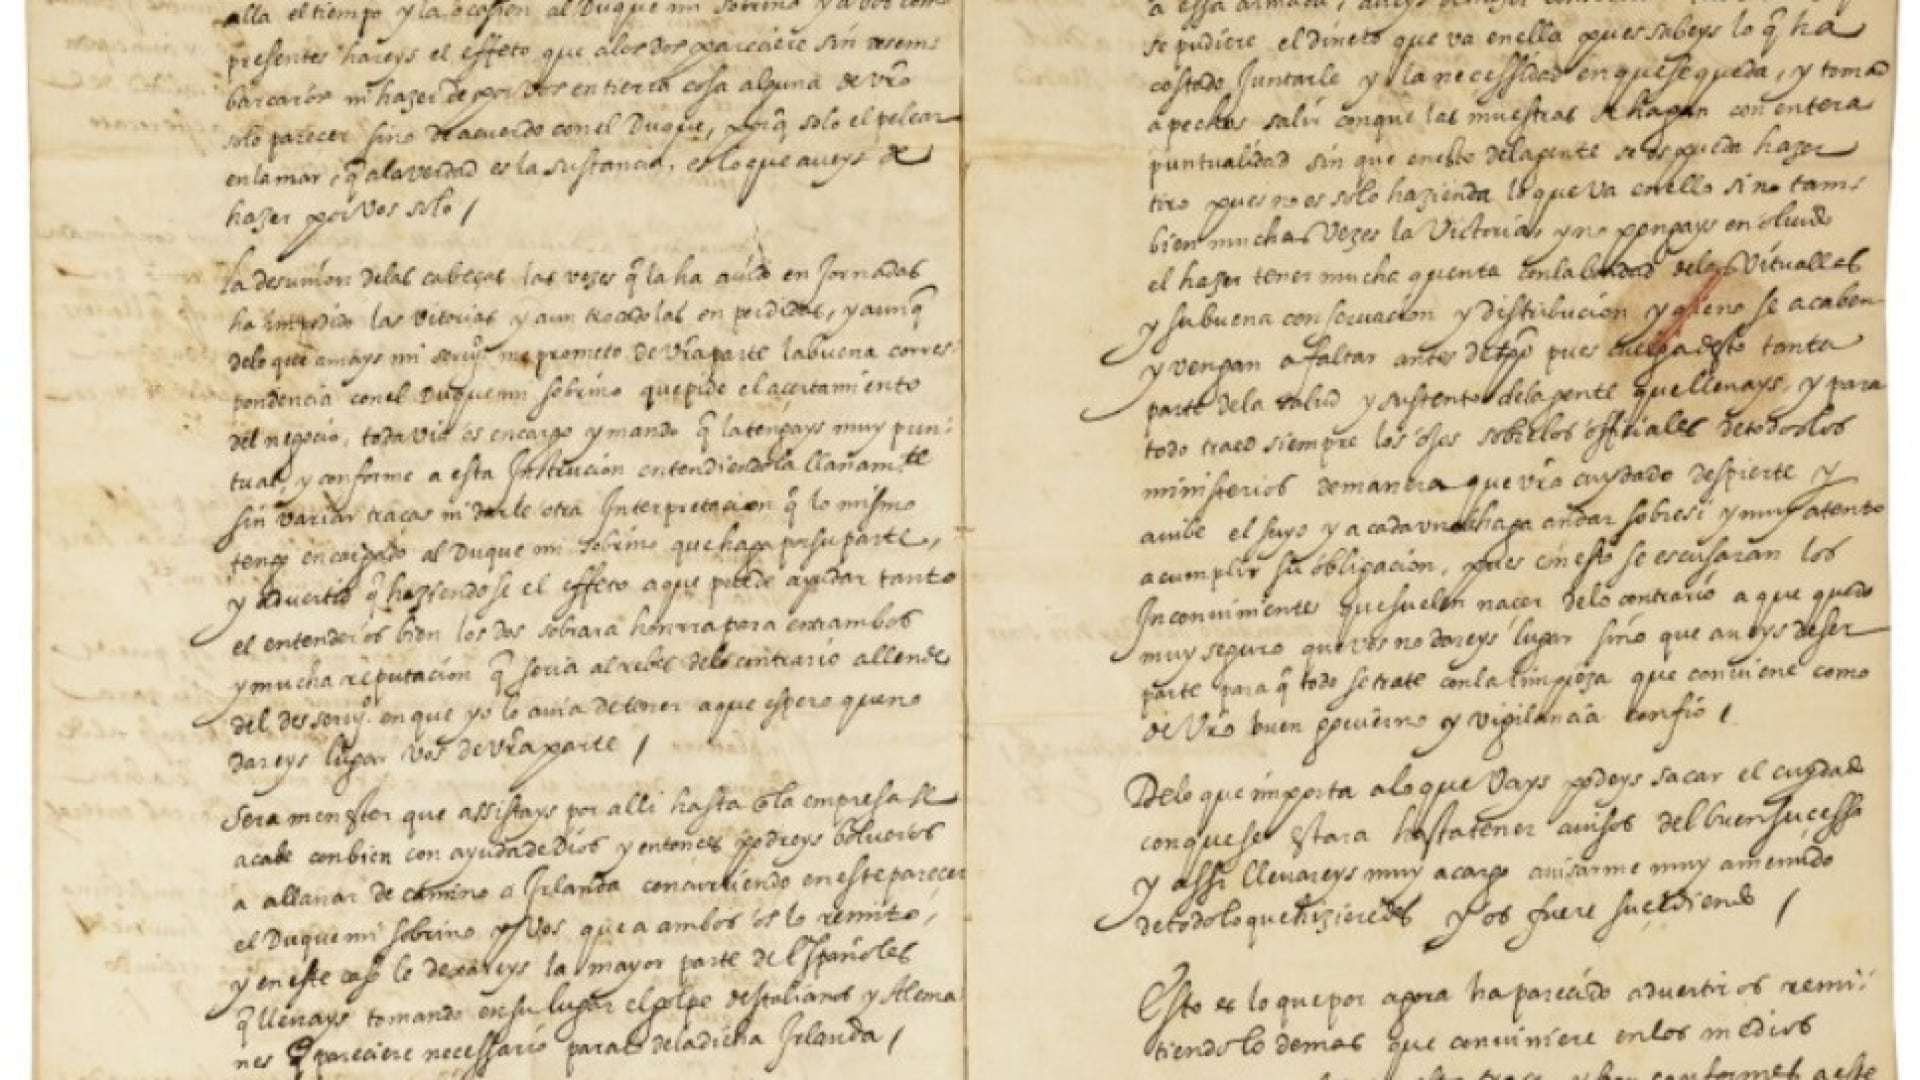 alla el tiempo y la ocasion al Duque mi sobrino y a vos como
presentes hareys el effeto que a los dos pareciere sin desem-
barcaros ni hazer de por vos en tierra cosa alguna de vro
solo parecer sino de acuerdo con el Duque, porq solo el pelear
en la mar, q a la verdad es la sustancia, es lo que aveys de
hazer por vos solo /
La desunion de las cabeças las vezes q la ha auido en Jornadas
ha impedido las vitorias y aun trocadolas en perdidas, y aunq
de lo que amays mi seruio me prometo de vra parte la buena corres-
pondencia con el Duque mi sobrino que pide el acertamiento
del negocio, todavia os encargo y mando q la tengays muy pun-
tual, y conforme a esta Instrucion entendiendola llanamte
sin variar traças ni darle otra Interpretacion q lo mismo
tengo encargado al Duque mi sobrino que haga por su parte,
y aduertid q haziendose el effeto a que puede ayudar tanto
el entenderos bien los dos sobrara honrra para entrambos
y mucha reputacion q seria al rebes de lo contrario allende
del desseruio en que yo lo auia de tener a que espero que no
dareys lugar vos de vra parte /
Sera menester que assistays por alli hasta q la empresa se
acabe con bien con ayuda de Dios y entonces podreys bolueros
a allanar de camino a Irlanda conuiniendo en este parecer
el Duque mi sobrino y vos que a ambos os lo remito,
y en este caso le dexareys la mayor parte de Españoles
q lleuays tomando en su lugar el golpe de Italianos y Alema
nes q pareciere necessario para lo de la dicha Irlanda /
a essa armada,
se pudiere el dinero que va en ella pues sabeys lo q ha
costado Juntarle y la necessidad en que se queda, y tomad
a pechos salir con que las muestras se hagan con entera
puntualidad sin que en esto de la gente se os pueda hazer
tiro pues no es solo hazienda lo que va en ello sino tam-
bien muchas vezes la Victoria, y no pongays en oluido
el hazer tener mucha quenta con la bondad de las Vituallas
y su buena conseruacion y distribucion y q no se acaben
y vengan a faltar antes de tpo pues cuelga desto tanta
parte de la salud y sustento de la gente que lleuays, y para
todo traed siempre los ojos sobre los officiales de todos los
ministerios de manera que vro cuydado despierte y
auibe el suyo y a cada vno haga andar sobre si y muy atento
a cumplir su obligacion, pues con esto se escusaran los
Inconuinientes que suelen nacer de lo contrario a que quedo
muy seguro que vos no dareys lugar sino que aueys de ser
parte para q todo se trate con la limpieza que conuiene como
de vro buen gouierno y vigilancia confio /
De lo que importa a lo que Vays podeys sacar el cuydado
con que se estara hasta tener auisos del buen suçesso
y assi lleuareys muy a cargo auisarme muy a menudo
de todo lo que hizieredes y os fuere suçediendo /
Esto es lo que por agora ha parecido aduertiros remi-
tiendo lo demas que conuiniere en los medios